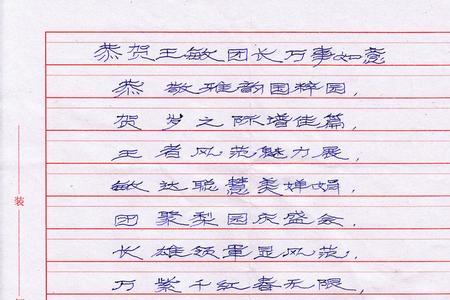 恭贺王敏团长万事如意
恭 敬雅韵国粹园,
贺 岁之际增佳篇,
王 者风范魅力展,
敏 达聪慧美婵娟,
装
团 聚梨园庆盛会,
长 雄领軍显风范,
万 紫千红春无限,